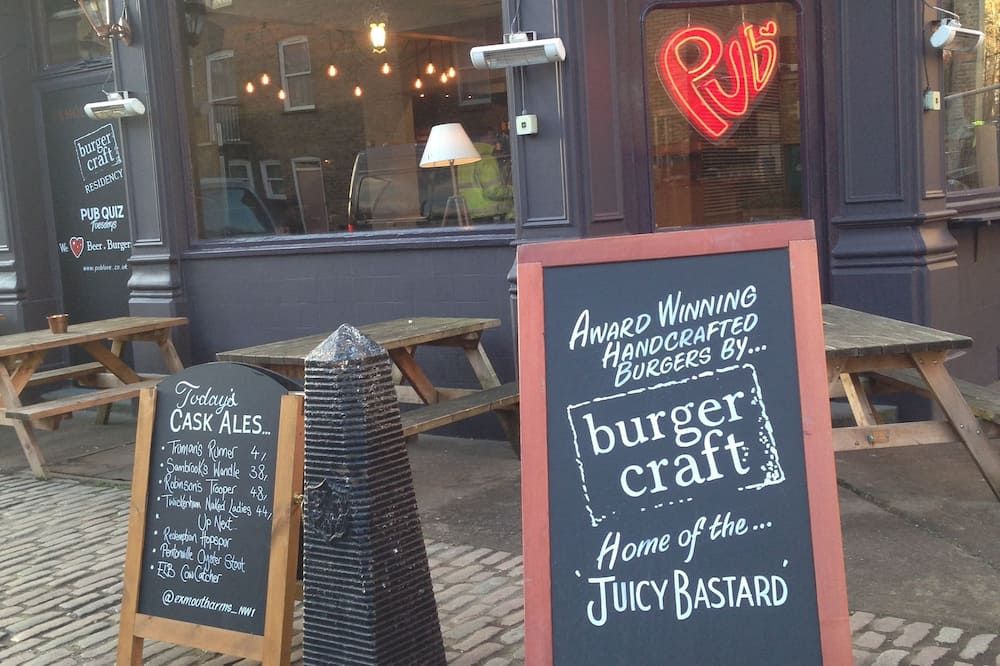 burger
craft
RESIDENCY
PUB QUIZ
Tuesdays
We Beer. Burger
www.publove.co.uk
PUb
Today's
CASK ALES...
Truman's Runner 4,
• Sambrook's Wandle 3.8,
• Robinson's Trooper 4.8,
• Twickenham Naked Ladies 4.4,
Up Next...
• Redemption Hopspur
• Pentonville Oyster Stout
• ELB Cow Catcher
@exmoutharms_NW1
AWARD WINNING
HANDCRAFTED
BURGERS BY...
burger
craft
Home of the...
'JUICY BASTARD'